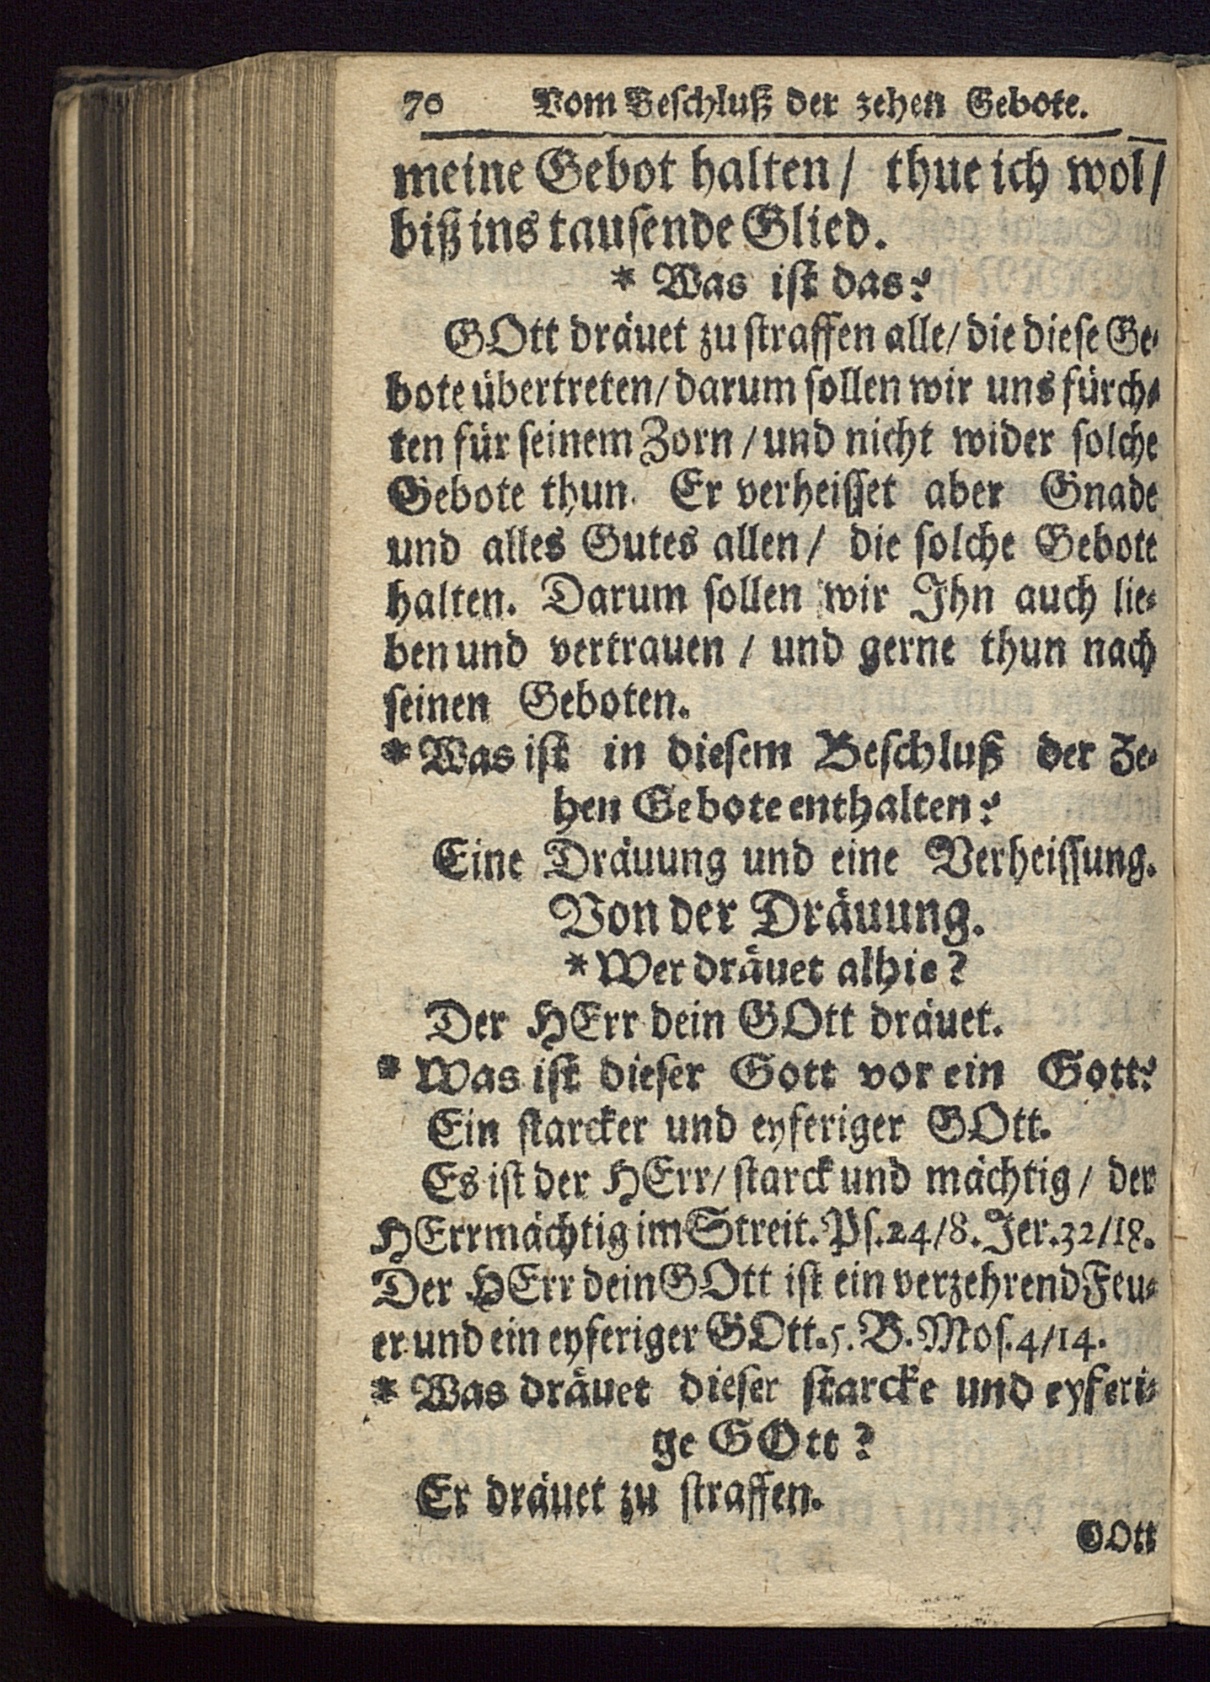 70 Vom Beschluß der zehen Gebote.
meine Gebot halten / thue ich wol /
biß ins tausende Glied.
* Was ist das?
GOtt dräuet zu straffen alle / die diese Ge-
bote übertreten / darum sollen wir uns fürch-
ten für seinem Zorn / und nicht wider solche
Gebote thun. Er verheisset aber Gnade
und alles Gutes allen / die solche Gebote
halten. Darum sollen wir Ihn auch lie-
ben und vertrauen / und gerne thun nach
seinen Geboten.
* Was ist in diesem Beschluß der Ze-
hen Gebote enthalten?
Eine Dräuung und eine Verheissung.
Von der Dräuung.
* Wer dräuet alhie?
Der HErr dein GOtt dräuet.
* Was ist dieser Gott vor ein Gott?
Ein starcker und eyferiger GOtt.
Es ist der HErr / starck und mächtig / der
HErr mächtig im Streit. Ps. 24/8. Jer. 32/18.
Der HErr dein GOtt ist ein verzehrend Feu-
er und ein eyferiger GOtt. 5. B. Mos. 4/14.
* Was dräuet dieser starcke und eyferi-
ge GOtt?
Er dräuet zu straffen.
GOtt